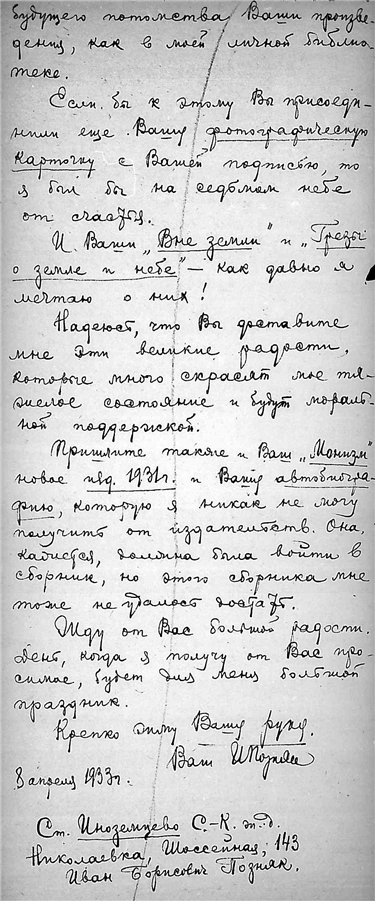 будущего потомства Ваши произве-
дения, как в моей личной библио-
теке.
Если бы к этому Вы присоеди-
нили еще Вашу фотографическую
карточку с Вашей подписью, то
я был бы на седьмом небе
от счастья.
И Ваши „Вне земли" и „Грезы
о земле и небе" — как давно я
мечтаю о них!
Надеюсь, что Вы доставите
мне эти великие радости,
которые много скрасят мое тя-
желое состояние и будут мораль-
ной поддержкой.
Пришлите также и Ваш „Монизм"
новое изд. 1931г. и Вашу автобиогра-
фию, которую я никак не могу
получить от издательств. Она,
кажется, должна была войти в
сборник, но этого сборника мне
тоже не удалось достать.
Жду от Вас большой радости.
День, когда я получу от Вас про-
симое, будет для меня большой
праздник.
Крепко жму Вашу руку.
Ваш ИПозняк
8 апреля 1933г.
Ст. Иноземцево С.-К. ж.д.
Николаевка, Шоссейная, 143
Иван Борисович Позняк.